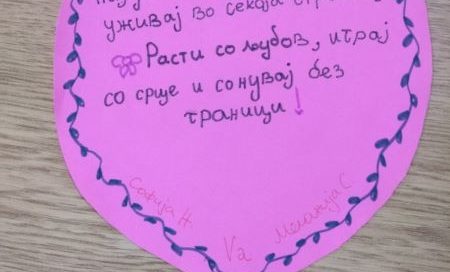 уживај во секоја
Расти со љубов, играј
со срце и сонувај без
граници!
Софија Н
Меланија С
Va